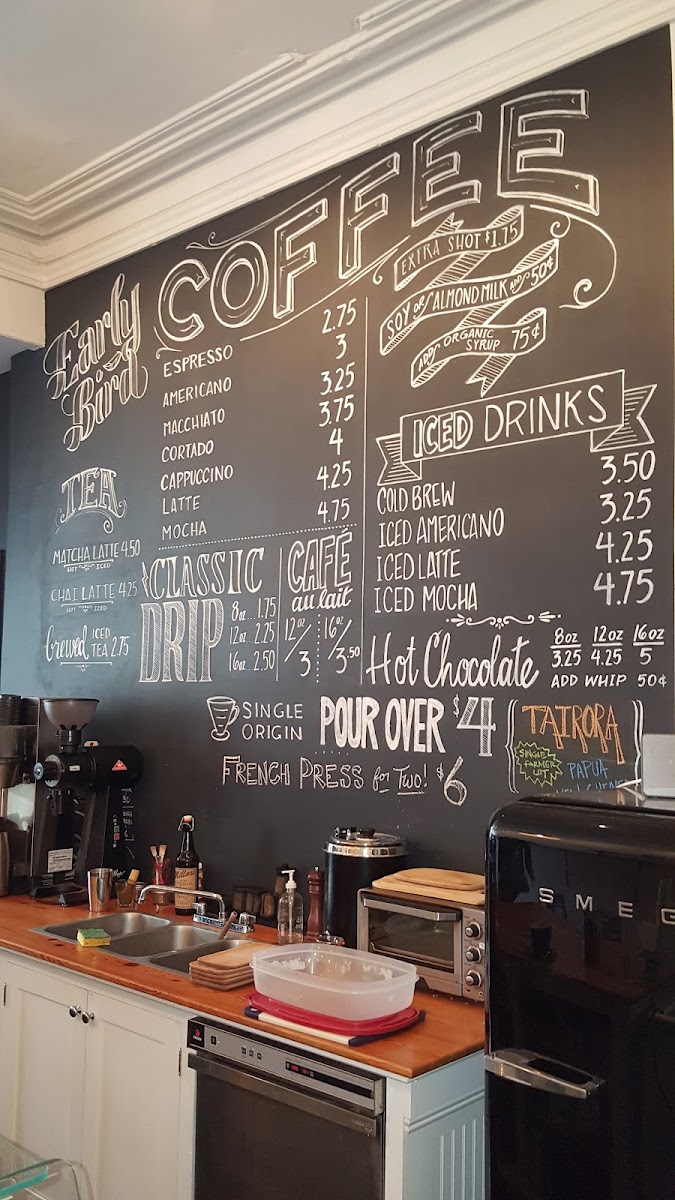 Early
Bird
COFFEE
ESPRESSO 2.75
AMERICANO 3
MACCHIATO 3.25
CORTADO 3.75
CAPPUCCINO 4
LATTE 4.25
MOCHA 4.75
EXTRA SHOT $1.75
SOY or ALMOND MILK ADD 50¢
ADD ORGANIC SYRUP 75¢
ICED DRINKS
COLD BREW 3.50
ICED AMERICANO 3.25
ICED LATTE 4.25
ICED MOCHA 4.75
TEA
MATCHA LATTE 4.50
HOT ICED
CHAI LATTE 4.25
HOT ICED
Brewed ICED TEA 2.75
CLASSIC
DRIP
8oz...1.75
12oz..2.25
16oz..2.50
CAFÉ
au lait
12oz/3
16oz/3.50
Hot Chocolate
8oz 12oz 16oz
3.25 4.25 5
ADD WHIP 50¢
SINGLE
ORIGIN
POUR OVER $4
FRENCH PRESS for Two! $6
TAIRORA
SINGLE
FARMER
LOT
PAPUA
SMEG